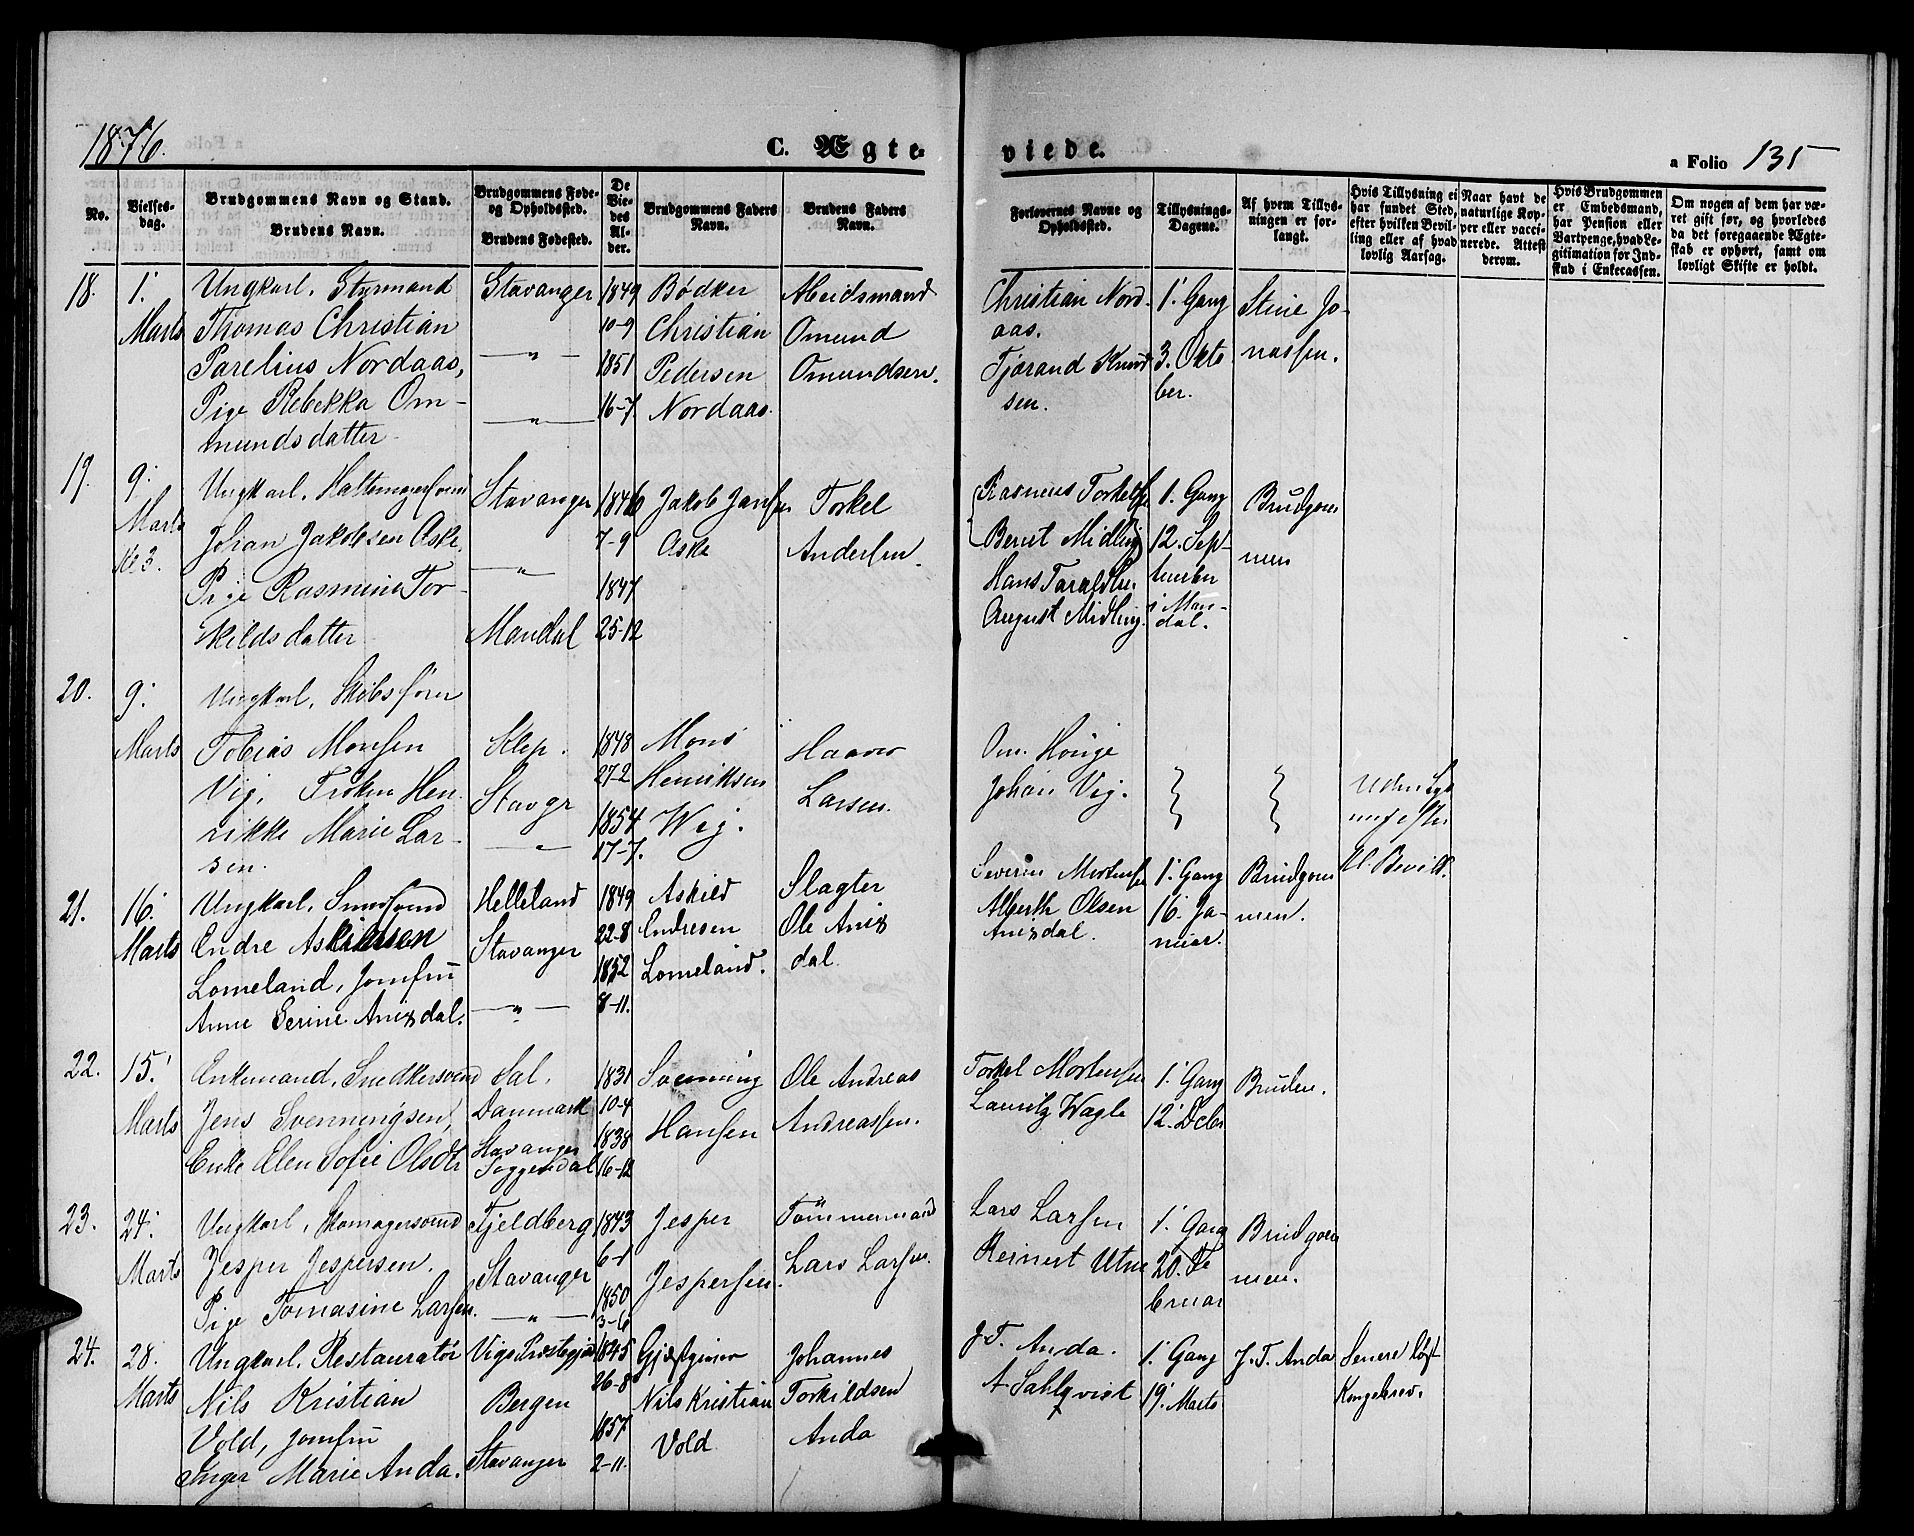 1876.
C. Ægte-
viede.
a Folio 135
No.
Vielses-
dag.
Brudgommens Navn og Stand.
Brudens Navn.
Brudgommens Føde-
og Opholdsted.
Brudens Fødested.
De
Vie-
des
Al-
der.
Brudgommens Faders
Navn.
Brudens Faders
Navn.
Forlovernes Navne og
Opholdsted.
Tillysnings-
Dagene.
Af hvem Tillys-
ningen er for-
langt.
Hvis Tillysning ei
har fundet Sted,
efter hvilken Bevil-
ling eller af hvad
lovlig Aarsag.
Naar havt de
naturlige Kop-
per eller vacci-
nerede. Attest
derom.
Hvis Brudgommen
er Embedsmand,
har Pension eller
Vartpenge, hvad Le-
gitimation for Ind-
skud i Enkecassen.
Om nogen af dem har væ-
ret gift før, og hvorledes
da det foregaaende Ægte-
skab er ophørt, samt om
lovligt Skifte er holdt.
18.
1.
Marts
Ungkarl, Styrmand
Thomas Christian
Parelius Nordaas,
Pige Rebekka Om-
mundsdatter
Stavanger
— " —
— " —
1849
10-9
1851
16-7
Bødker
Christian
Pedersen
Nordaas.
Abeidsmand
Omund
Omundsen.
Christian Nord-
aas.
Tjørand Knud
sen.
1. Gang
3. Okto
ber.
Stine Jo-
nassen.
19.
9.
Marts
Kl 3.
Ungkarl, Hattemagersvend
Johan Jakobsen Aske,
Pige Rasmine Tor-
kildsdatter
Stavanger
— " —
Mandal
1846
7-9
1847
25-12
Jakob Jansen
Aske
Torkel
Andersen.
Rasmus Torkelsen
Bernt Midling
Hans Taraldsen
August Midling
1. Gang
12. Sep-
tember
i Man-
dal.
Brudgom
men
20.
9.
Marts
Ungkarl, Skibsfører
Tobias Monsen
Vig, Frøken Hen-
rikke Marie Lar-
sen.
Klep.
Stavgr
— " —
1848
27-2
1854
17-7.
Mons
Henriksen
Wig.
Haaver
Larsen.
Om. Houge
Johan Vig.
Uden Lys
ning efter
Kl. Bevill.
21.
16.
Marts
Ungkarl, Smedsvend
Endre Askildsen
Lomeland, Jomfru
Anne Serine Anisdal.
Helleland
Stavanger
— " —
1849
22-8
1852
8-11.
Askild
Endresen
Lomeland.
Slagter
Ole Anis
dal.
Severin Mortensen
Alberth Olsen
Anisdal.
1. Gang
16. Ja-
nuar.
Brudgom
men.
22.
15.
Marts
Enkemand, Snedkersvend
Jens Svenningsen,
Enke Elen Sofie Olsdtr
Sal.
Danmark
Stavanger
Soggendal
1831
10-4
1838
16-12
Svenning
Hansen
Ole Andreas
Andreassen.
Torkel Mortensen
Lauritz Wagle
1. Gang
12. Debr
Bruden.
23.
24.
Marts
Ungkarl, Skomagersvend
Jesper Jespersen.
Pige Tomasine Larsen.
Fjeldberg
Stavanger
— " —
1843
6-1
1850
3-6
Jesper
Jespersen.
Tømmermand
Lars Larsen.
Lars Larsen
Reinert Utne
1. Gang
20. Fe
bruar
Brudgom
men.
24.
28.
Marts
Ungkarl, Restauratør
Nils Kristian
Vold, Jomfru
Inger Marie Anda.
Vigs Præstegjæld
Bergen
Stavanger
1845
26-8
1857
2-11.
Gjæstgiver
Nils Kristian
Vold
Johannes
Torkildsen
Anda
J. T. Anda.
A Sahlqvist
1. Gang
19. Marts
J. T. Anda
Senere løst
Kongebrev.